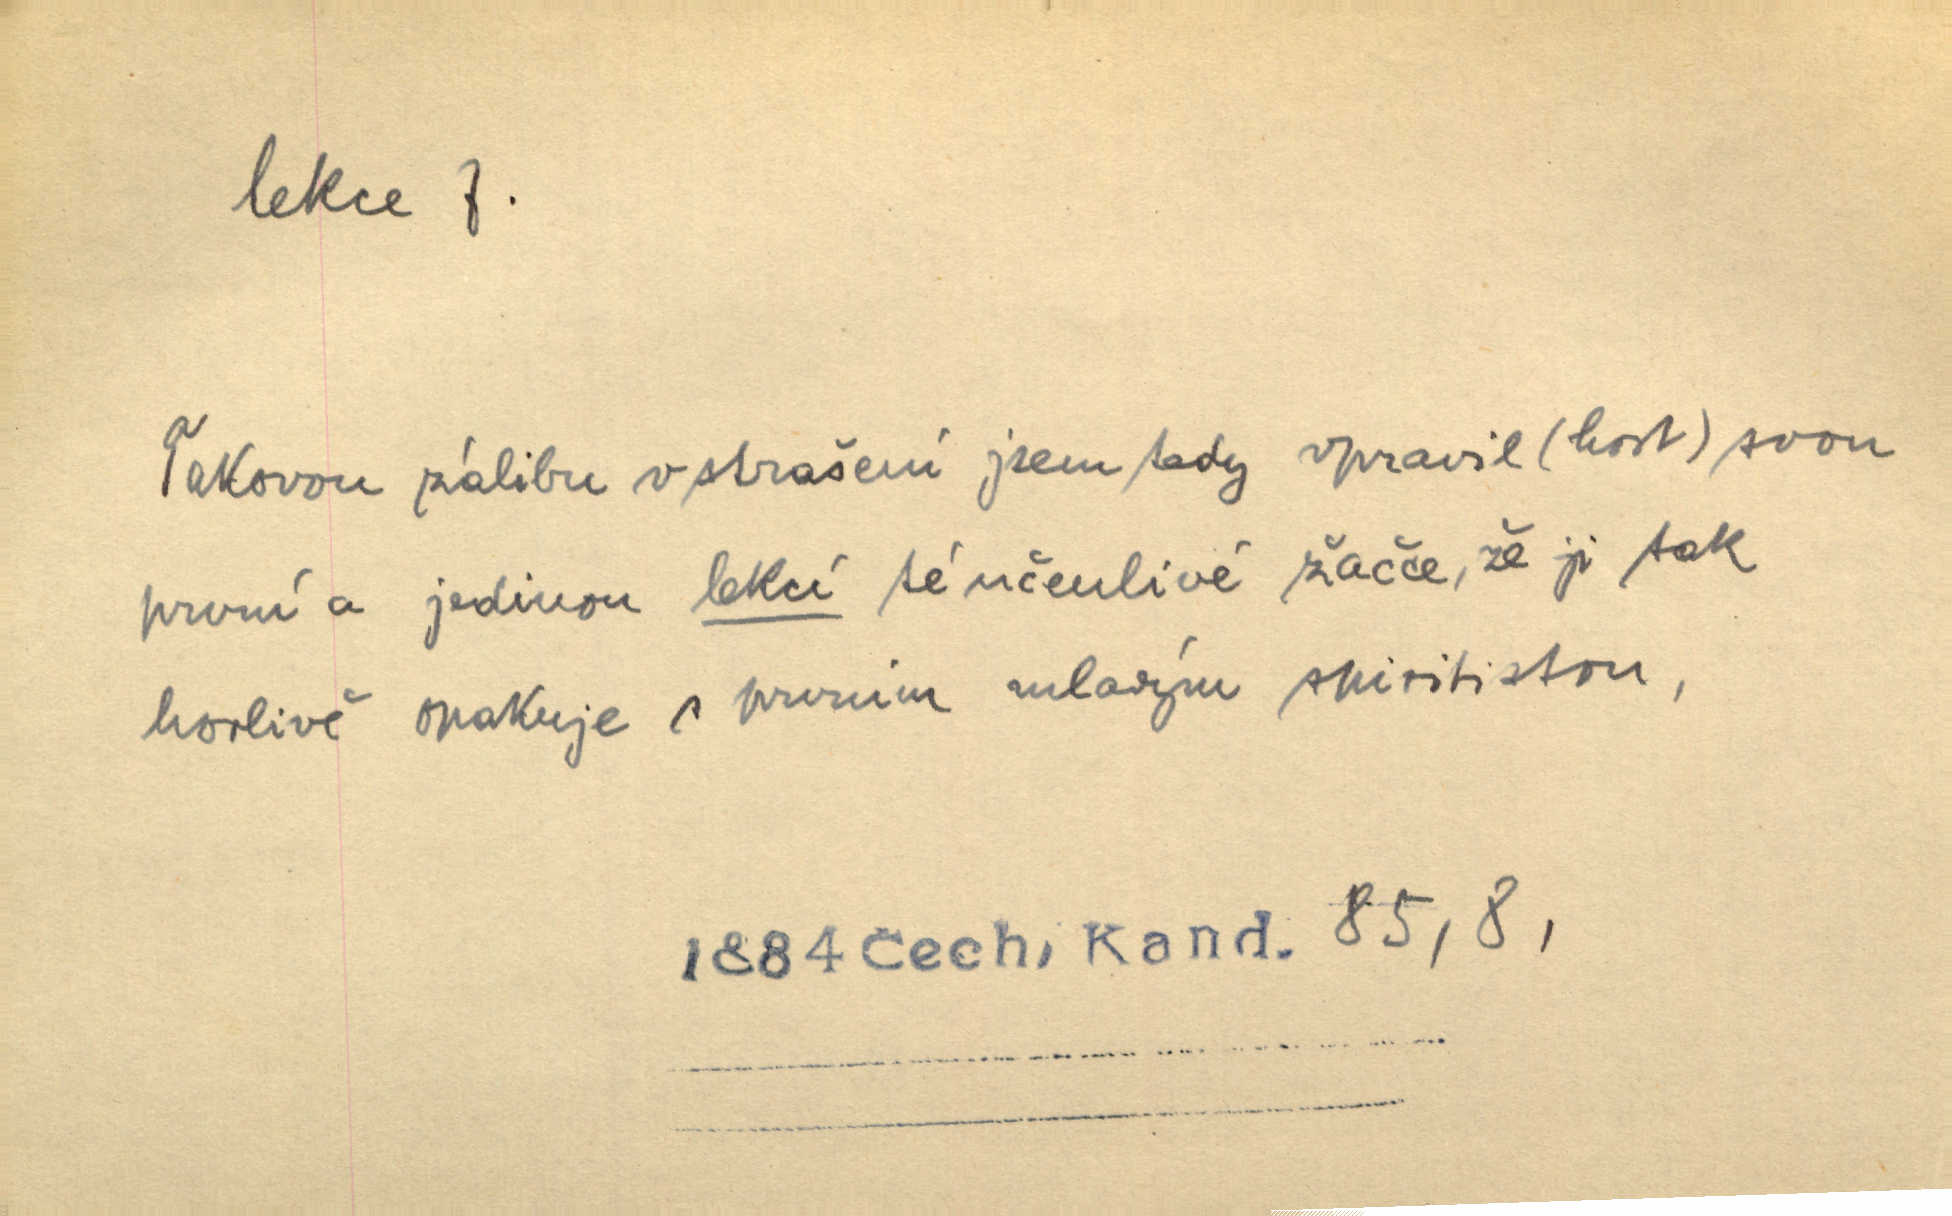 lekce f.
Takovou zálibu v strašení jsem tedy vpravil (host) svou
první a jedinou lekcí té učenlivé žačče, že ji tak
horlivě opakuje s prvním mladým spiritistou,
1884 Čech, Kand. 85, 8,